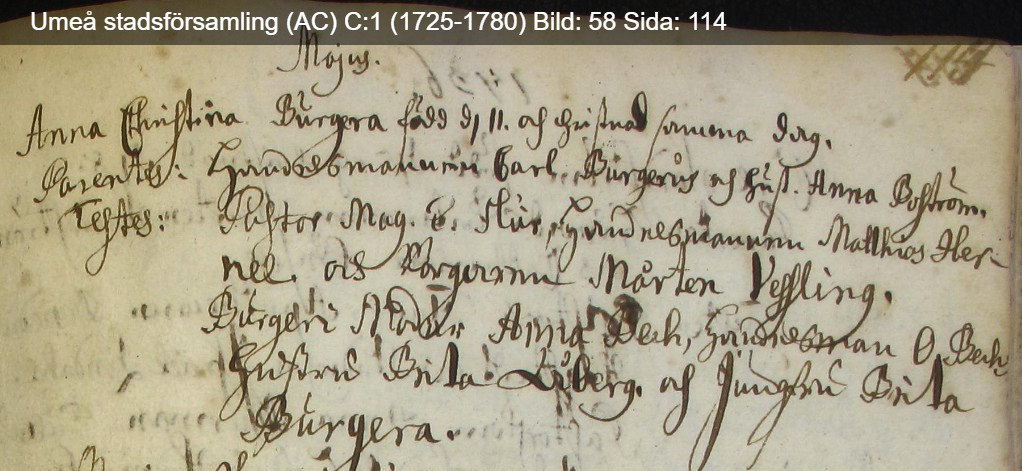 Umeå stadsförsamling (AC) C:1 (1725-1780) Bild: 58 Sida: 114
Majus.
Anna Christina Burgera född d 11. och christnad samma dag.
Parentes: Handelsmannen Carl Burgerus och Hust. Anna Boström.
Testes: Pastor Mag. Handelsmannen Matthias Her-
nel och Borgaren Mårten Vessling.
Burgeri Moder Anna Bech, Handelsman O. Bech
Hustru Brita och Jungfru Brita
Burgera.